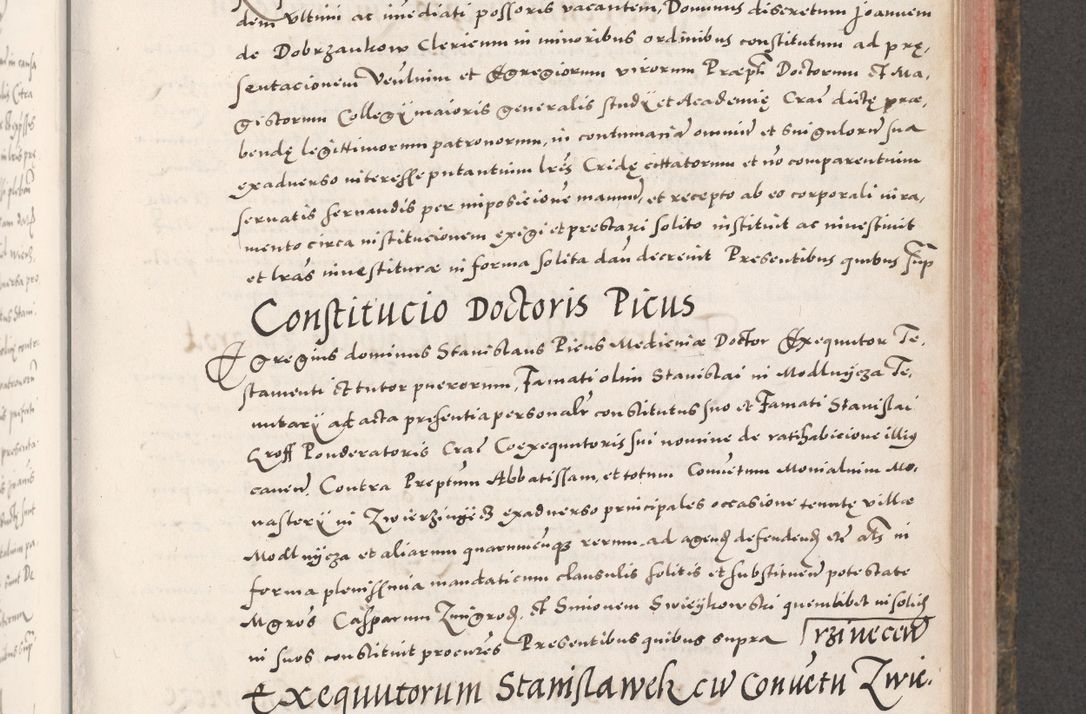 dem ultimi ac imediati possoris vacantem, Dominus discretum Joannem
de Dobrzankow Clericum in minoribus ordinibus constitutum ad pre,
sentacionem Venlnim et Egregiorum virorum Præpti Doctorum et Ma,
gistorum Collegy maioris generalis study et Academię Crac dictę præ,
bendę legittimorum patronorum, in contumaciā omniū et singulorū sua
exadverso interesse putantium lrēs Cridę cittatorum et nō comparentium
servatis servandis per imposicionē manuū, et recepto ab eo corporali iura,
mento circa institucionem exigi et prestari solito instituit ac investiuit
et lrās investituræ in forma solita dari decrevit Presentibus quibus sup
Constitucio Doctoris Picus
Egregius dominus Stanislaus Picus Medicinæ Doctor Exequutor Te,
stamenti et tutor puerorum, Famati olim Stanislai in Modlnijcza Te,
nutary ad acta presentia personalr constitutus suo et Famati Stanislai
Groff Ponderatoris Crac Coexequutoris sui nomine de ratihabicione illig
caven, Contra Preptum Abbatissam, et totum Conuētum Monialium Mo,
nastery in Zwierzinijecz exadverso principales occasione tenutę villæ
Modlnijcza et aliarum quarumcunqz rerum, ad agend defendend etc atz in
forma plenissima mandaticum clausulis solitis et substituen potestate
Mgros Casparum Zmigrod, et Simonem Swieykowski quemlibet in solid
in suos constituit procures Presentibus quibus supra
Exequutorum Stanislawek cu Conuetu Zwie,
rzinecen